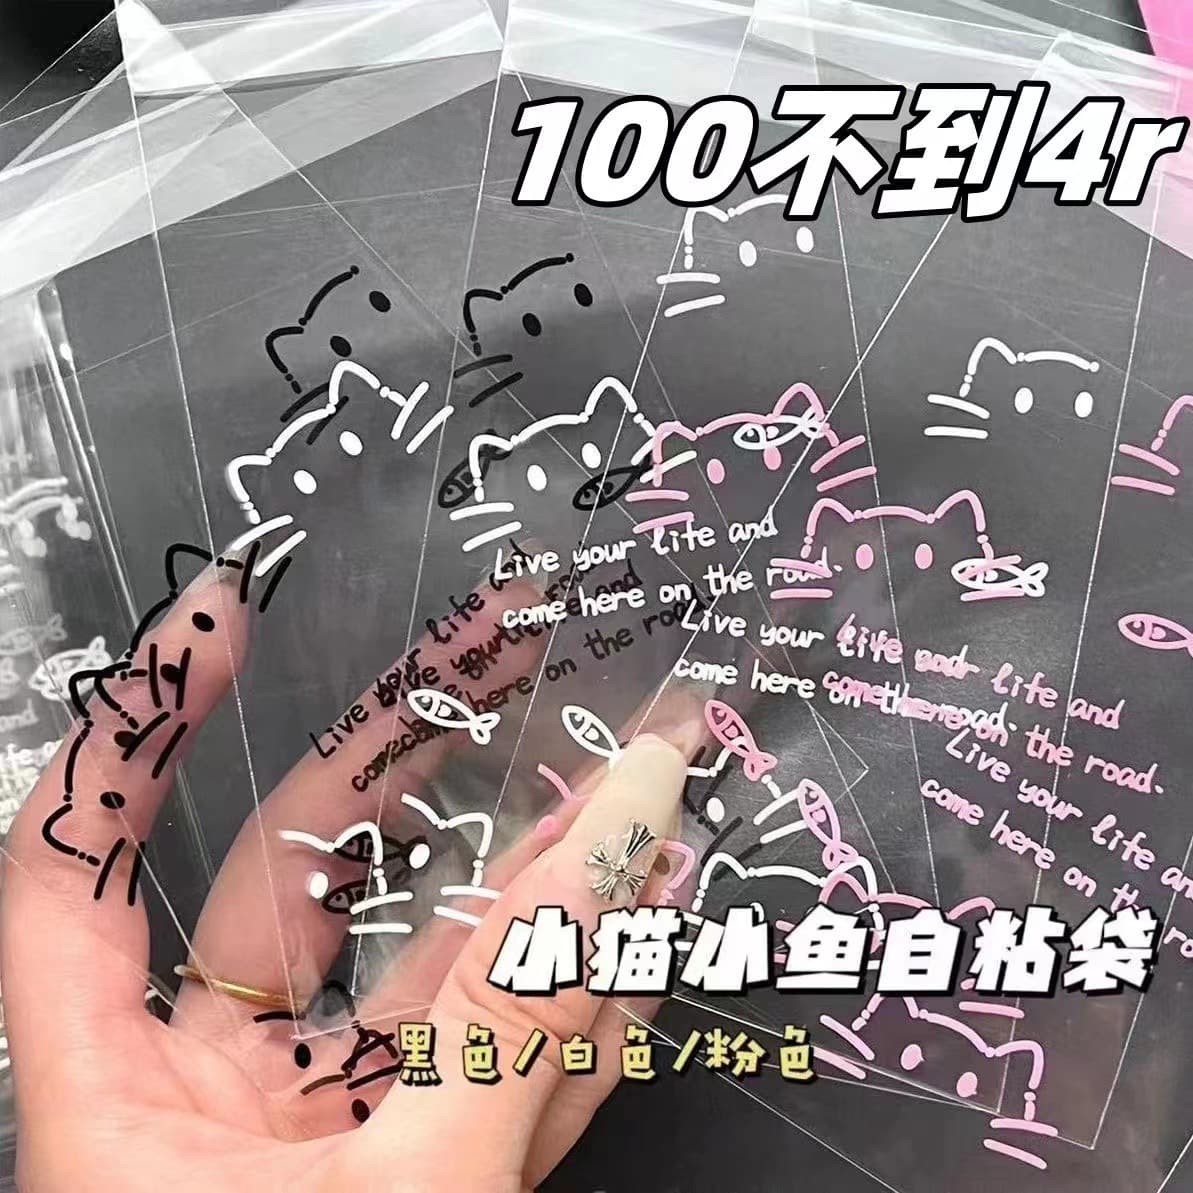 100不到4r
Live your life and
come here on the road.
Live your life and
come here on the road.
Live your life and
come here on the road.
Live your life and
come here on the road.
Live your life an
come here on th ro
小猫小鱼自粘袋
黑色/白色/粉色